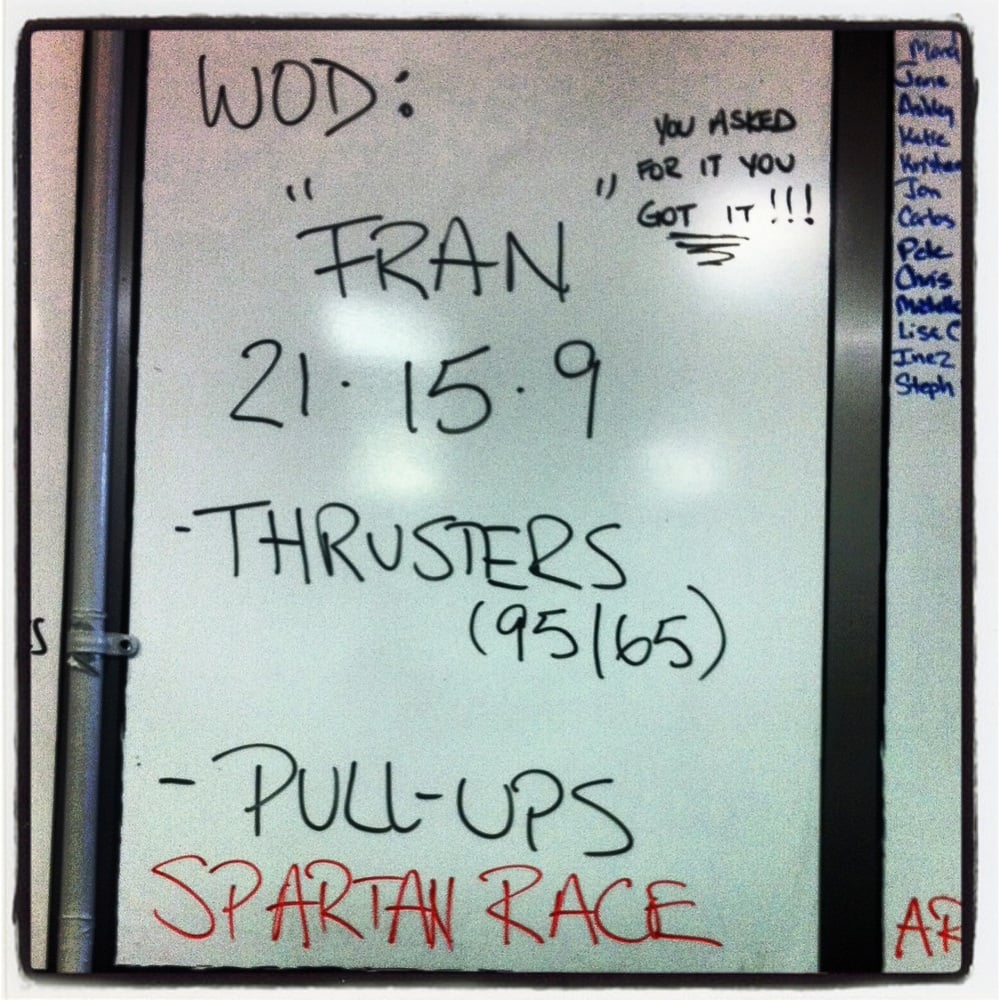 WOD:
YOU ASKED
FOR IT YOU
GOT IT!!!
"FRAN"
21·15·9
-THRUSTERS
(95/65)
-PULL-UPS
SPARTAN RACE
Jane
Ashley
Katie
Jon
Carlos
Pete
Chris
Michelle
Lisa C
Inez
Steph
AR
S